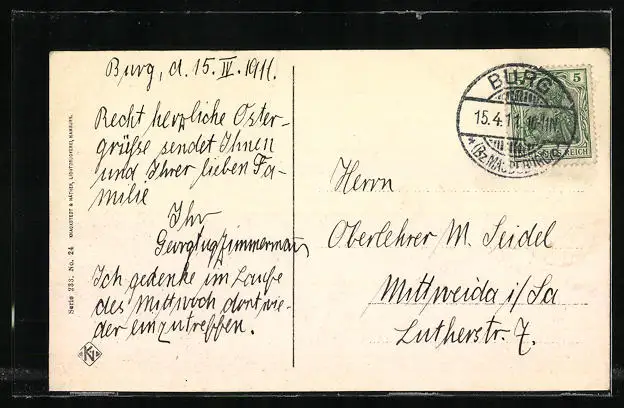 Burg, d. 15. IV. 1911.
Recht herzliche Oster-
grüße sendet Ihnen
und Ihrer lieben Fa-
milie
Ihr
Ich gedenke im Laufe
des Mittwoch dort wie-
der einzutreffen.
Serie 233. No. 24
KNACKSTEDT & NÄTHER, LICHTDRUCKEREI, HAMBURG.
BURG
15.4.11.
* (Bz. MAGDEBURG)
5
REICH
Herrn
Oberlehrer M. Seidel
Mittweida i/Sa
Lutherstr. 7.